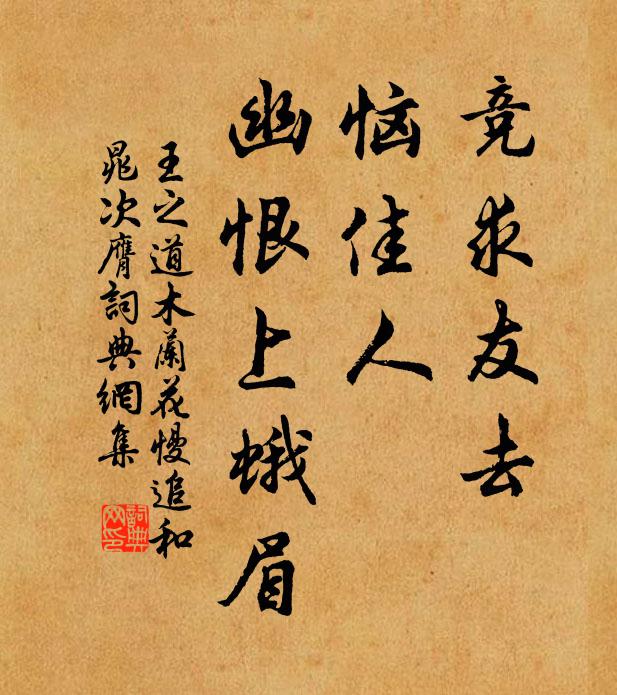 竞求友去
恼佳人
幽恨上蛾眉
王之道木蘭花慢追和
晁次膺詞典網集
詞典网印